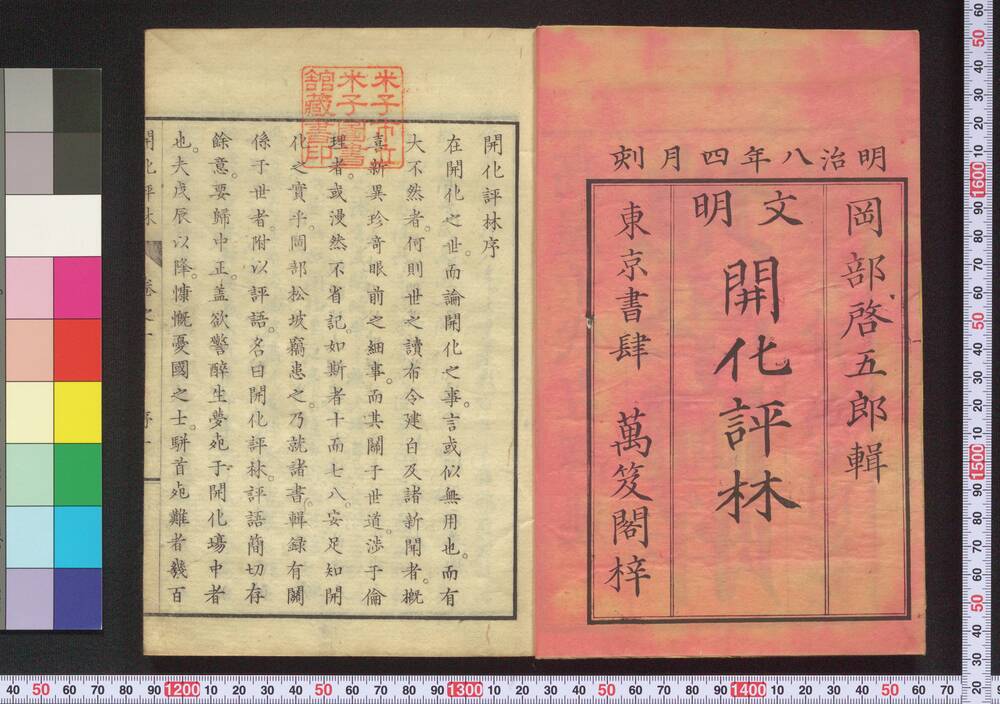 明治八年四月刻
岡部啓五郎輯
文明
開化評林
東京書肆 萬笈閣梓
開化評林序
在開化之世。而論開化之事。言或似無用也。而有
大不然者。何則世之讀布令建白及諸新聞者。概
喜新異珍奇眼前之細事。而其關于世道。渉于倫
理者。或漫然不省記。如斯者十而七八。安足知開
化之實乎。岡部松坡竊患之。乃就諸書。輯録有關
係于世者。附以評語。名曰開化評林。評語簡切存
餘意。要歸中正。蓋欲警醉生夢死于開化場中者
也。夫戊辰以降。慷慨憂國之士。駢首死難者幾百
開化評林 卷之一 序一
米子市立
米子圖書
館藏書印
40 50 60 70 80 90 1200 10 20 30 40 50 60 70 80 90 1300 10 20 30 40 50 60 70 80 90 1400 10 20 30 40 50 60 70